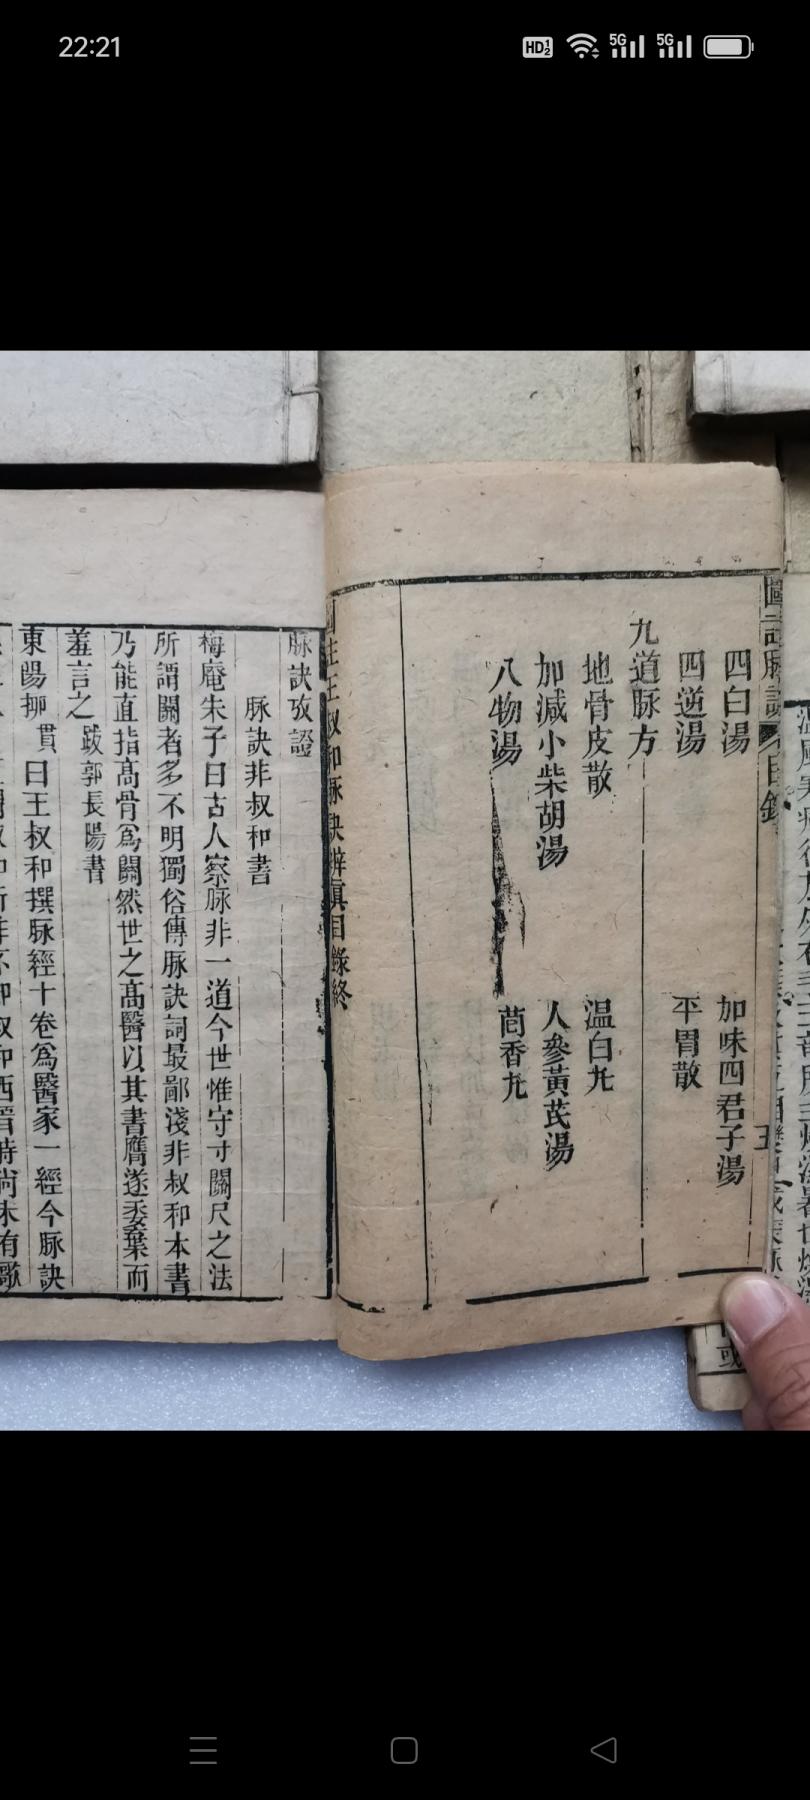 22:21
圖註脉訣
目錄
四白湯
加味四君子湯
四逆湯
平胃散
九道脉方
地骨皮散
温白丸
加減小柴胡湯
人參黃芪湯
八物湯
茴香丸
圖註王叔和脉訣辨真目錄終
五
脉訣攷證
脉訣非叔和書
梅庵朱子曰古人察脉非一道今世惟守寸關尺之法
所謂關者多不明獨俗傳脉訣詞最鄙淺非叔和本書
乃能直指高骨爲關然世之高醫以其書贗遂委棄而
羞言之
跋郭長陽書
東陽柳貫曰王叔和撰脉經十卷爲醫家一經今脉訣